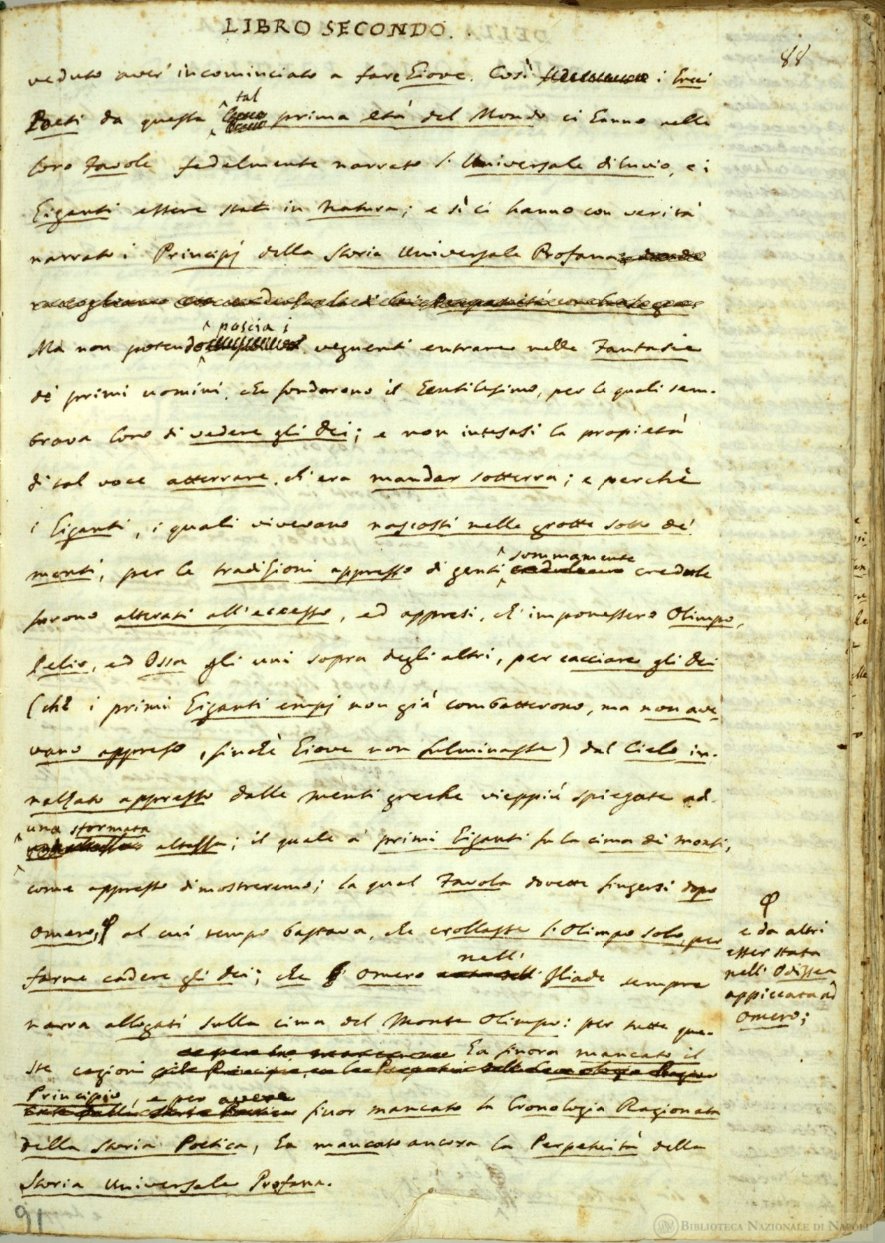 LIBRO SECONDO.
88
veduto aver' incominciato a fare Giove. Così i Eroi
tal
Poeti da questa prima età del Mondo ci hanno nelle
loro Favole fedelmente narrato l'Universale diluvio, e i
Giganti essere stati in Natura; e sì ci hanno con verità
narrato i Principj della Storia Universale Profana
poscia i
Ma non potendo vegnenti entrare nelle Fantasie
de' primi uomini, che fondarono il Gentilesimo, per le quali sem-
brava loro di vedere gli Dei; e non intesasi la propietà
di tal voce atterrare, ch'era mandar sotterra; e perchè
i Giganti, i quali vivevano nascosti nelle grotte sotto de'
monti, per le tradizioni appresso di genti sommamente credule
furono alterati all'eccesso, ed appresi, ch'imponessero Olimpo,
Pelio, ed Ossa gli uni sopra degli altri, per cacciare gli Dei
(che i primi Giganti empj non già combatterono, ma non ave-
vano appreso, finchè Giove non fulminasse) dal Cielo in-
nalzato appresso dalle menti greche vieppiù spiegate ad
una sformata
altezza; il quale a' primi Giganti fu la cima de' monti,
come appresso dimostreremo; la qual Favola dovette fingersi dopo
Omero, φ al cui tempo bastava, che crollasse l'Olimpo solo, per
farne cadere gli Dei; che Omero nell' Iliade sempre
narra allogati sulla cima del Monte Olimpo: per tutte que-
ste cagioni ha finora mancato il
Principio, e per avere
finor mancato la Cronologia Ragionata
della Storia Poetica, ha mancato ancora la Perpetuità della
Storia Universale Profana.
φ
e da altri
esser stata
nell' Odissea
appiccata ad
Omero;
91
BIBLIOTECA NAZIONALE DI NAPOLI